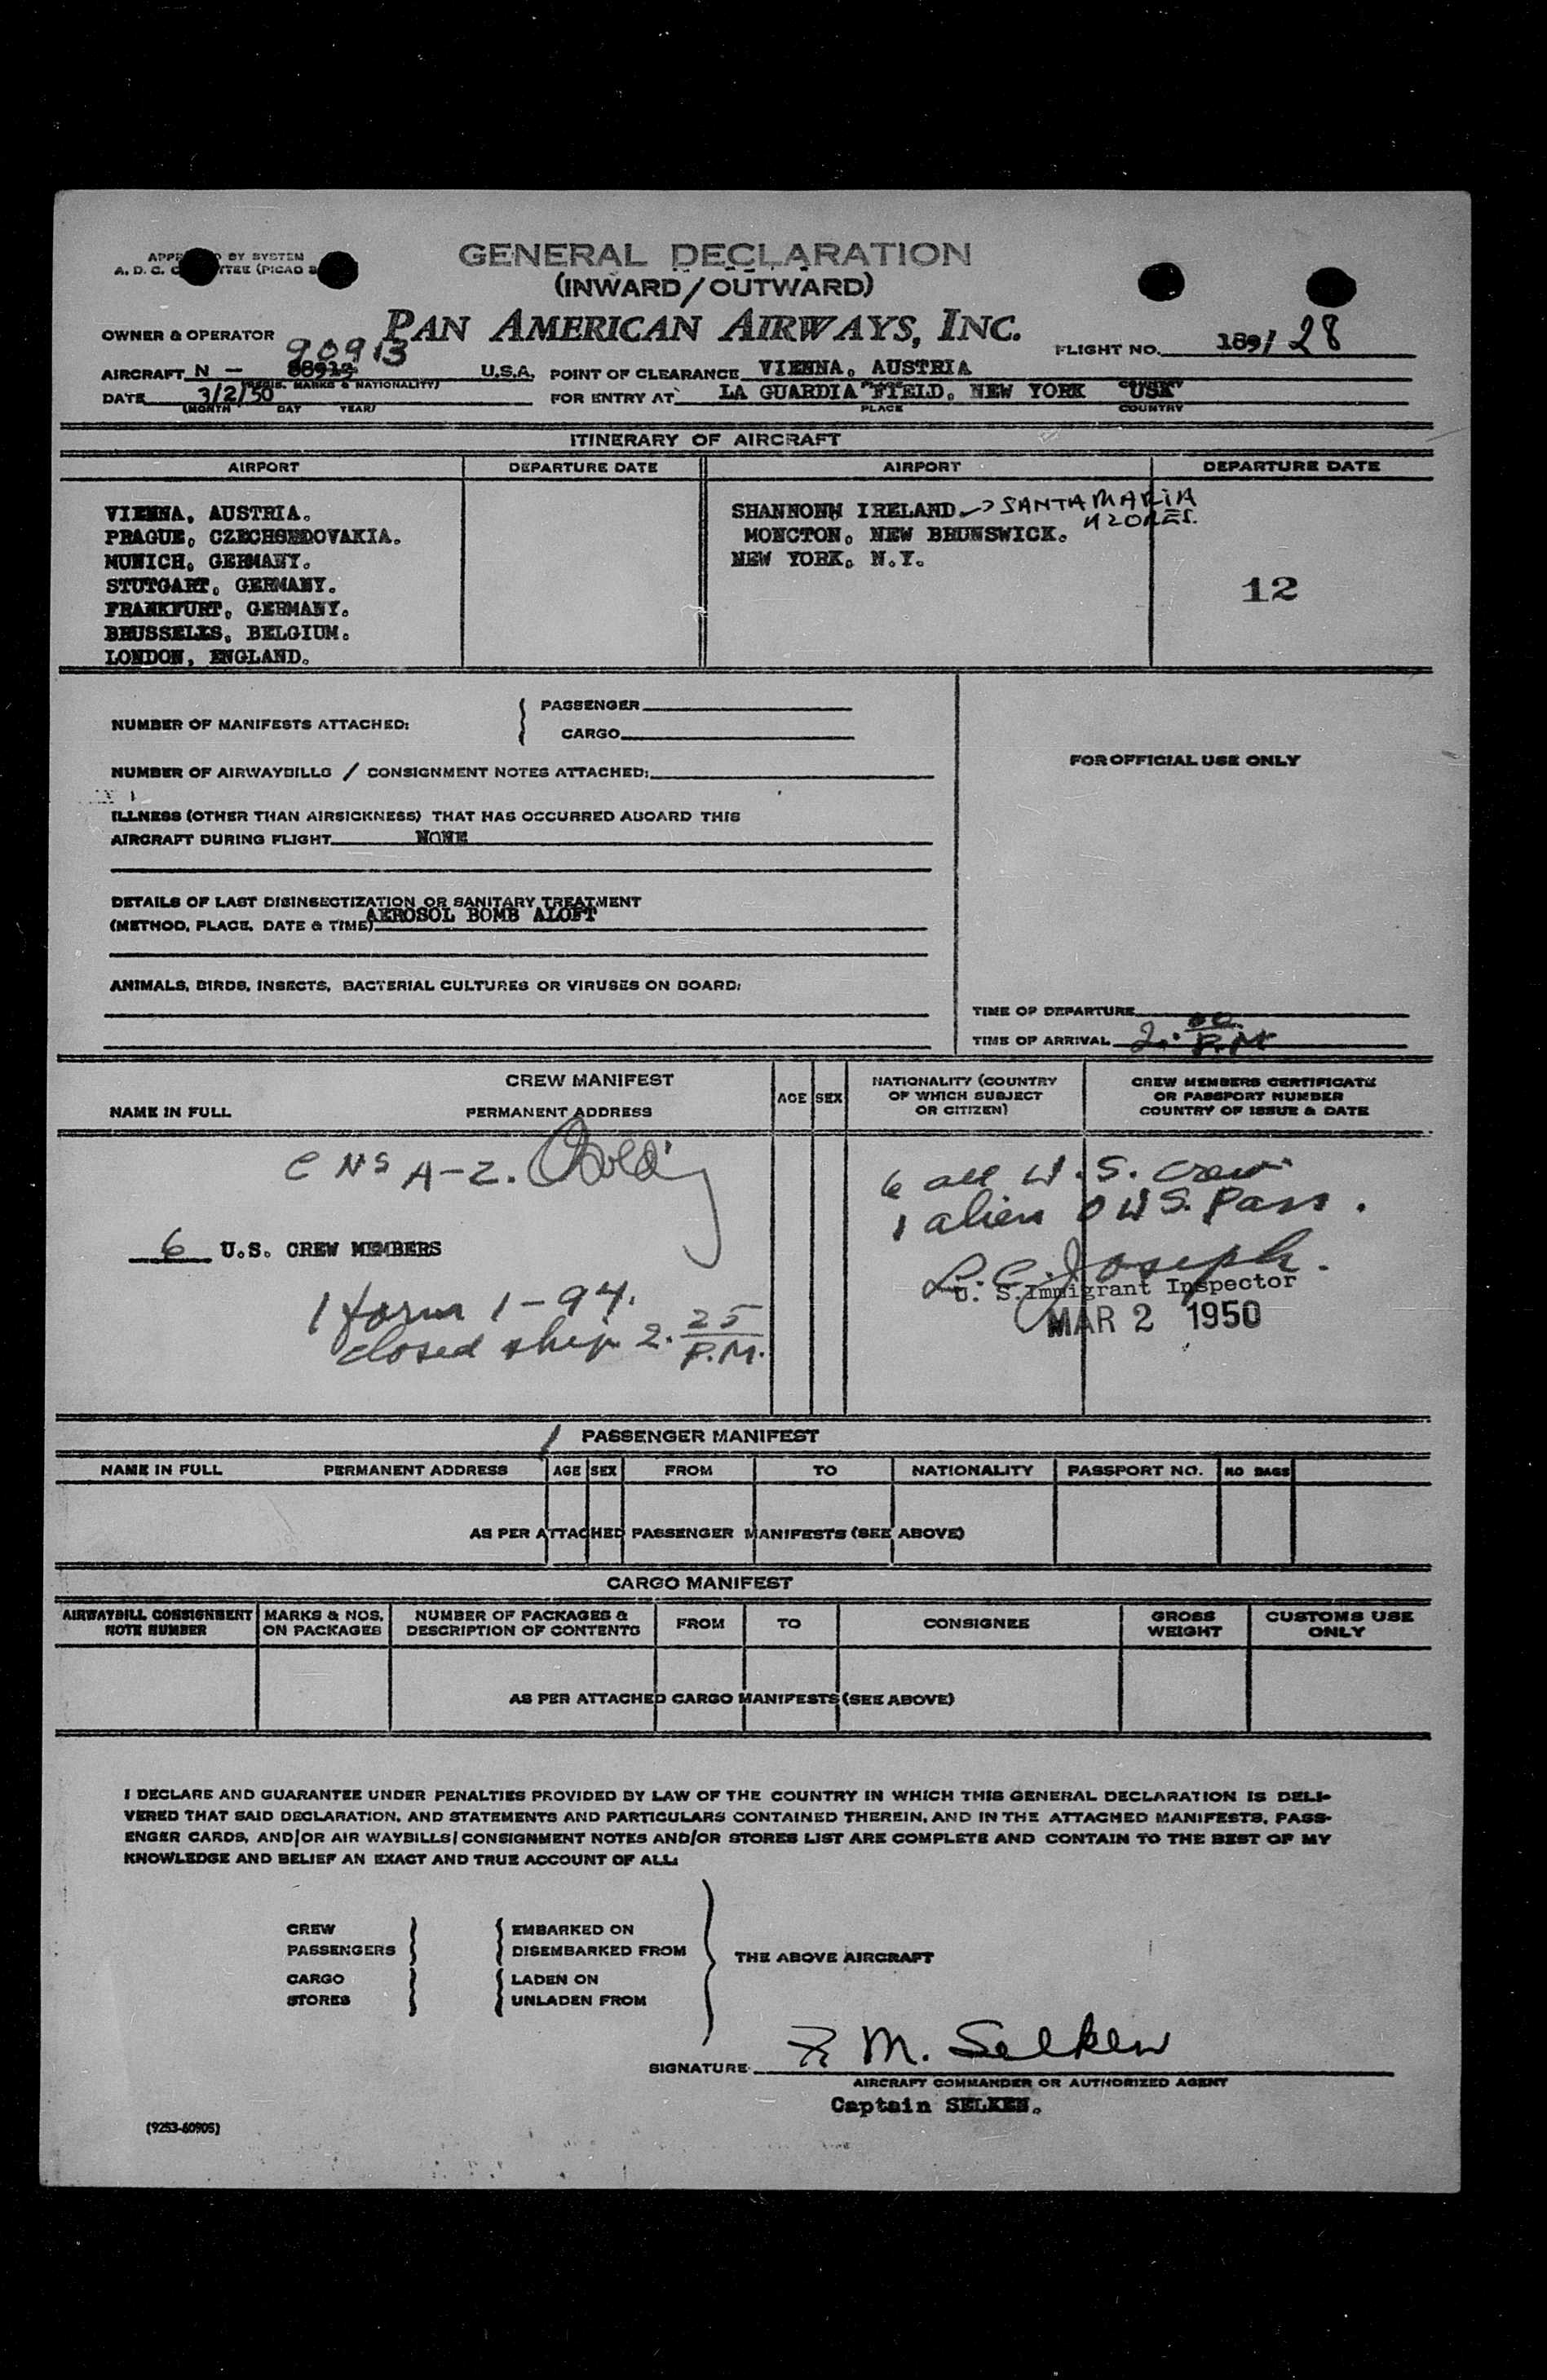 GENERAL DECLARATION
(INWARD/OUTWARD)
BY SYSTEM
A. D. C. (PICAO
PAN AMERICAN AIRWAYS, INC.
OWNER & OPERATOR
90913
FLIGHT NO. 189/ 28
AIRCRAFT N - U.S.A. POINT OF CLEARANCE VIENNA, AUSTRIA
(REGIS. MARKS & NATIONALITY) COUNTRY
DATE 3/2/50 FOR ENTRY AT LA GUARDIA FIELD, NEW YORK USA
(MONTH DAY YEAR) PLACE COUNTRY
ITINERARY OF AIRCRAFT
AIRPORT DEPARTURE DATE AIRPORT DEPARTURE DATE
VIENNA, AUSTRIA. SHANNONN IRELAND -> SANTA MARIA
PRAGUE, MONCTON, NEW BRUNSWICK. AZORES.
MUNICH, GERMANY. NEW YORK, N.Y.
STUTGART, GERMANY. 12
FRANKFURT, GERMANY.
BRUSSELLS, BELGIUM.
LONDON, ENGLAND.
NUMBER OF MANIFESTS ATTACHED: { PASSENGER
CARGO
FOR OFFICIAL USE ONLY
NUMBER OF AIRWAYBILLS / CONSIGNMENT NOTES ATTACHED:
ILLNESS (OTHER THAN AIRSICKNESS) THAT HAS OCCURRED ABOARD THIS
AIRCRAFT DURING FLIGHT NONE
DETAILS OF LAST DISINSECTIZATION OR SANITARY TREATMENT
(METHOD, PLACE, DATE & TIME) AEROSOL BOMB ALOFT
ANIMALS, BIRDS, INSECTS, BACTERIAL CULTURES OR VIRUSES ON BOARD:
TIME OF DEPARTURE
TIME OF ARRIVAL 2.00 P.M
CREW MANIFEST
NAME IN FULL PERMANENT ADDRESS AGE SEX NATIONALITY (COUNTRY OF WHICH SUBJECT OR CITIZEN) CREW MEMBERS CERTIFICATE OR PASSPORT NUMBER COUNTRY OF ISSUE & DATE
A-Z.
6 all U.S. crew
1 alien 0 US. Pass.
6 U.S. CREW MEMBERS
L. C. Joseph.
U. S. Immigrant Inspector
MAR 2 1950
1 form 1-94.
closed ship 2.25 P.M.
PASSENGER MANIFEST
NAME IN FULL PERMANENT ADDRESS AGE SEX FROM TO NATIONALITY PASSPORT NO. NO BAGS
AS PER ATTACHED PASSENGER MANIFESTS (SEE ABOVE)
CARGO MANIFEST
AIRWAYBILL CONSIGNMENT NOTE NUMBER MARKS & NOS. ON PACKAGES NUMBER OF PACKAGES & DESCRIPTION OF CONTENTS FROM TO CONSIGNEE GROSS WEIGHT CUSTOMS USE ONLY
AS PER ATTACHED CARGO MANIFESTS (SEE ABOVE)
I DECLARE AND GUARANTEE UNDER PENALTIES PROVIDED BY LAW OF THE COUNTRY IN WHICH THIS GENERAL DECLARATION IS DELI-
VERED THAT SAID DECLARATION, AND STATEMENTS AND PARTICULARS CONTAINED THEREIN, AND IN THE ATTACHED MANIFESTS, PASS-
ENGER CARDS, AND/OR AIR WAYBILLS/CONSIGNMENT NOTES AND/OR STORES LIST ARE COMPLETE AND CONTAIN TO THE BEST OF MY
KNOWLEDGE AND BELIEF AN EXACT AND TRUE ACCOUNT OF ALL:
CREW EMBARKED ON
PASSENGERS DISEMBARKED FROM
THE ABOVE AIRCRAFT
CARGO LADEN ON
STORES UNLADEN FROM
SIGNATURE M. Selken
AIRCRAFT COMMANDER OR AUTHORIZED AGENT
Captain SELKEN.
(9253-60905)